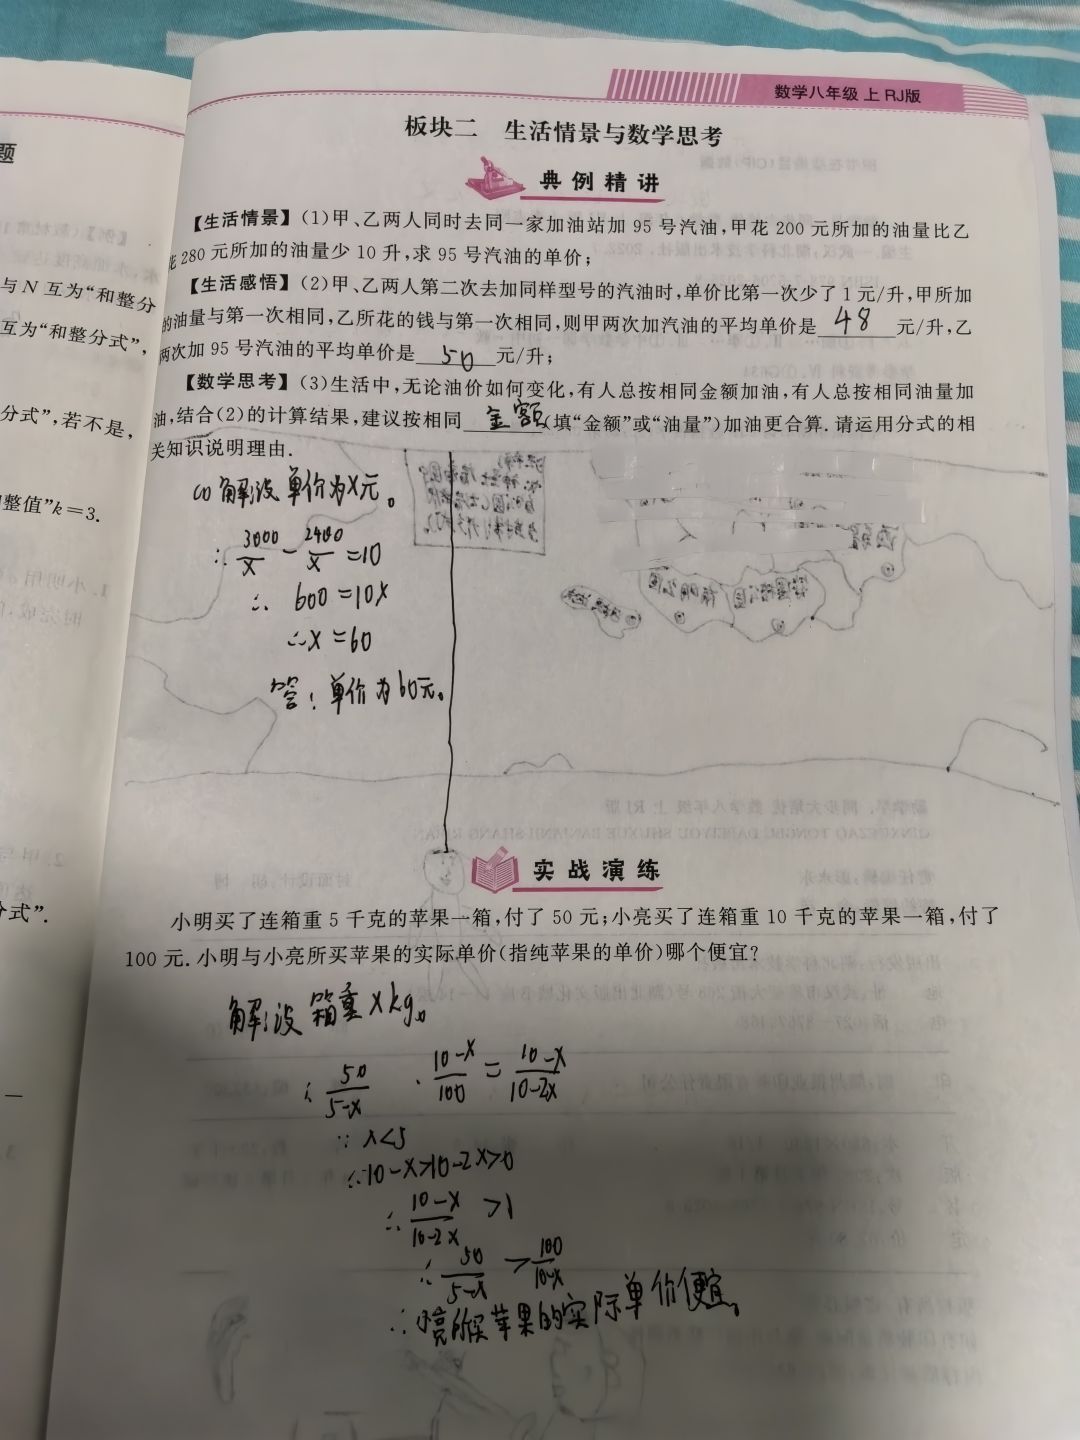 数学八年级 上 RJ版
板块二 生活情景与数学思考
典例精讲
【生活情景】(1)甲、乙两人同时去同一家加油站加 95 号汽油,甲花 200 元所加的油量比乙
花 280 元所加的油量少 10 升,求 95 号汽油的单价;
【生活感悟】(2)甲、乙两人第二次去加同样型号的汽油时,单价比第一次少了 1 元/升,甲所加
的油量与第一次相同,乙所花的钱与第一次相同,则甲两次加汽油的平均单价是 48 元/升,乙
两次加 95 号汽油的平均单价是 50 元/升;
【数学思考】(3)生活中,无论油价如何变化,有人总按相同金额加油,有人总按相同油量加
油,结合(2)的计算结果,建议按相同 金额 (填“金额”或“油量”)加油更合算. 请运用分式的相
关知识说明理由.
(1) 解:设单价为x元。
∴ 3000/x − 2400/x = 10
∴ 600 = 10x
∴ x = 60
答:单价为60元。
实战演练
小明买了连箱重 5 千克的苹果一箱,付了 50 元;小亮买了连箱重 10 千克的苹果一箱,付了
100 元. 小明与小亮所买苹果的实际单价(指纯苹果的单价)哪个便宜?
解:设箱重xkg。
∴ 50/5-x · 10-x/100 = 10-x/10-2x
∵ x<5
∴ 10-x>10-2x>0
∴ 10-x/10-2x >1
∴ 50/5-x > 100/10-x
∴ 小亮所买苹果的实际单价便宜。
题
与 N 互为“和整分
互为“和整分式”,
分式”,若不是,
整值”k=3.
分式”.